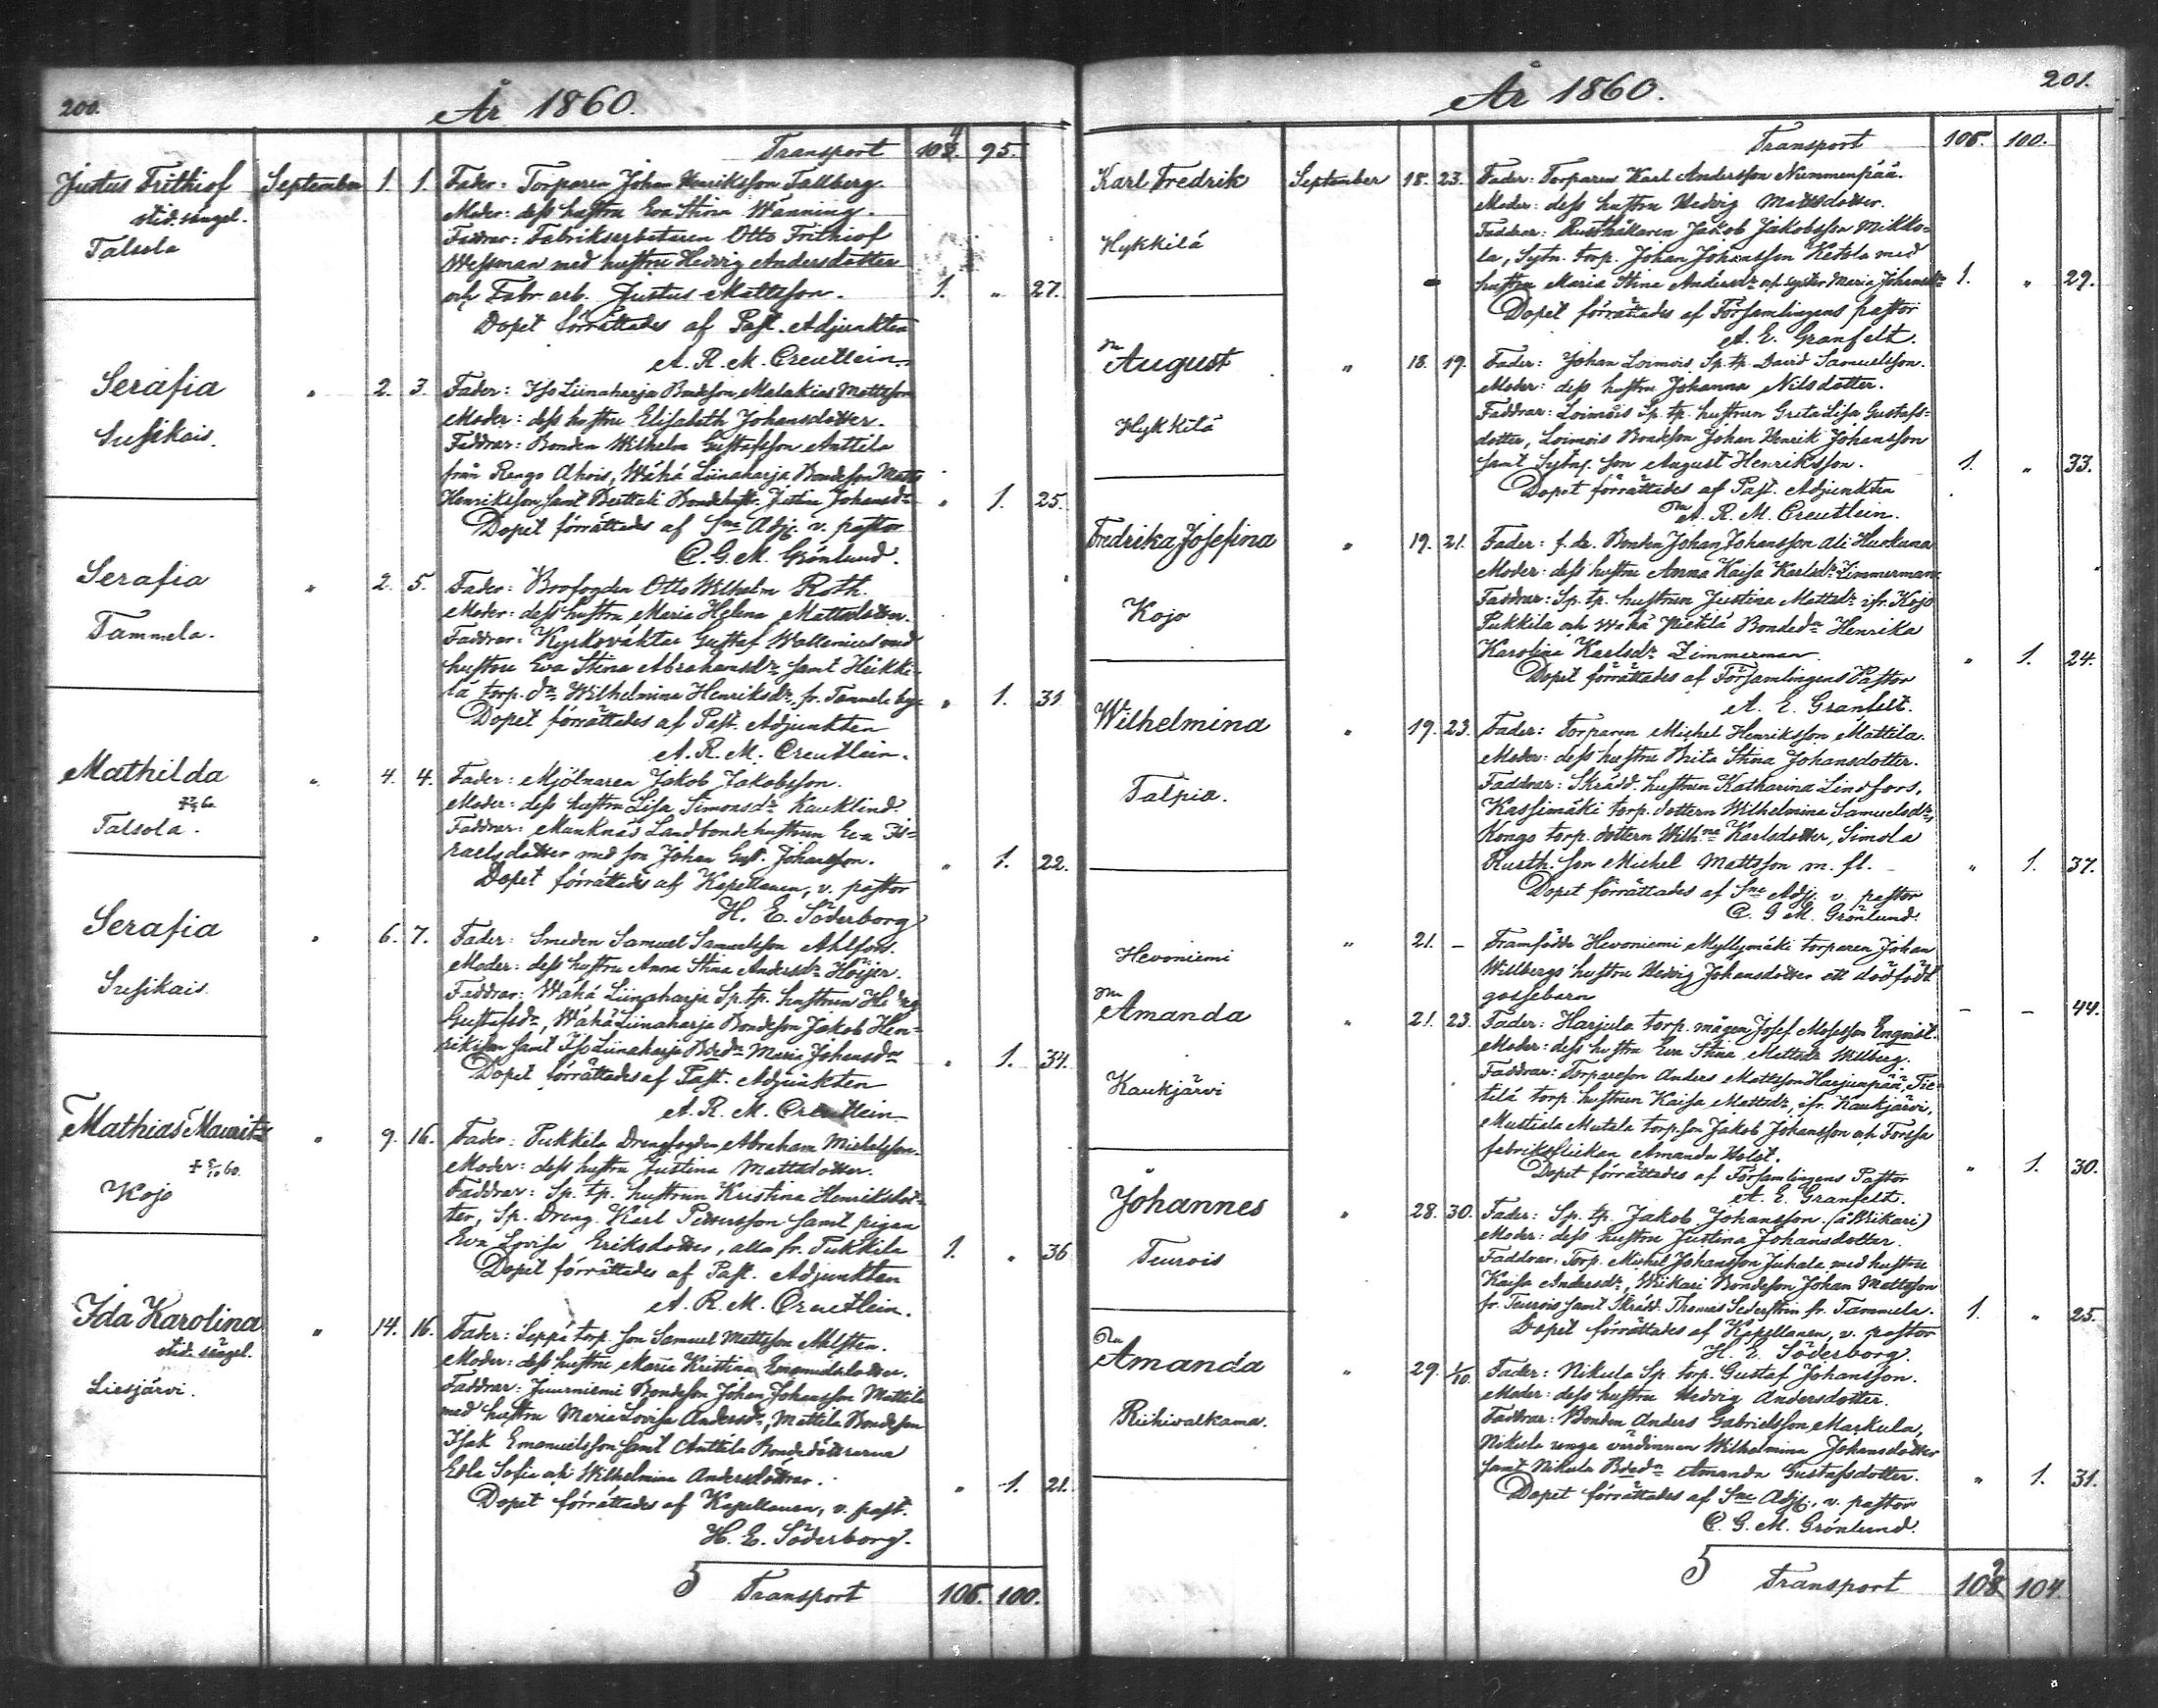 200.
År 1860.
Transport 104. 95.
Justus Frithiof September 1. 1. Fader: Torparen Johan Henriksson Tallberg.
Moder: dess hustru Eva Stina Wänning.
Talsola
Faddrar: Fabriksarbetaren Otto Frithiof
Wessman med hustru Hedvig Andersdotter
och Fabr. arb. Justus Mattsson. 1. " 27.
Dopet förrättades af Past. Adjunkten
A. R. M. Creutlein.
Serafia " 2. 3. Fader: Iso Liinaharja Bondeson Malakias Mattsson
Moder: dess hustru Elisabeth Johansdotter.
Susikais.
Faddrar: Bonden Wilhelm Gustafsson Anttila
från Rengo Ahois, Wähä Liinaharja Bondeson Matts
Henriksson samt Perttali Bondehustr. Justina Johansdr " 1. 25.
Dopet förrättades af Sne Adj. v. pastor
C. G. M. Grönlund.
Serafia " 2. 5. Fader: Brofogden Otto Wilhelm Roth.
Moder: dess hustru Maria Helena Mattsdotter.
Tammela.
Faddrar: Kyrkoväktar Gustaf Wallenius med
hustru Eva Stina Abrahamsdr samt Heikki-
lä torp. dn Wilhelmina Henriksdr, fr. Tammela by. " 1. 31
Dopet förrättades af Past. Adjunkten
A. R. M. Creutlein.
Mathilda " 4. 4. Fader: Mjölnaren Jakob Jakobsson.
Moder: dess hustru Lisa Simonsdr Kauklind.
Talsola.
Faddrar: Munknäs Landbondehustrun Eva Is-
raelsdotter med son Johan Gust. Johansson. " 1. 22.
Dopet förrättades af Kapellanen, v. pastor
H. E. Söderborg
Serafia " 6. 7. Fader: Smeden Samuel Samuelsson Ahlfors.
Moder: dess hustru Anna Stina Andersdr Höijer.
Susikais.
Faddrar: Wähä Liinaharja Sp. tp. hustrun Hedvig
Gustafsdr, Wähä Liinaharja Bondeson Jakob Hen-
riksson samt Iso Liinaharja Bdedn Maria Johansdr " 1. 34.
Dopet förrättades af Past. Adjunkten
A. R. M. Creutlein
Mathias Mauritz " 9. 16. Fader: Pukkila Drengfogden Abraham Michelsson.
Moder: dess hustru Justina Mattsdotter.
Kojo
Faddrar: Sp. tp. hustrun Kristina Henriksdot-
ter, Sp. Dreng. Karl Pettersson samt pigan
Eva Lovisa Eriksdotter, alla fr. Pukkila 1. " 36
Dopet förrättades af Past. Adjunkten
A. R. M. Creutlein.
Ida Karolina " 14. 16. Fader: Seppä torp. son Samuel Mattsson Ahlsten.
Moder: dess hustru Maria Kristina Emanuelsdotter.
Liesjärvi.
Faddrar: Juurniemi Bondeson Johan Johansson Mattila
med hustru Maria Lovisa Andersdr, Mattila Bondeson
Isak Emanuelsson samt Anttila Bondedöttrarna
Edla Sofia och Wilhelmina Andersdöttrar. " 1. 21.
Dopet förrättades af Kapellanen, v. past.
H. E. Söderborg.
Transport 105. 100.
201.
År 1860.
Transport 105. 100.
Karl Fredrik September 18. 23. Fader: Torparen Karl Andersson Nummenpää.
Moder: dess hustru Hedvig Mattsdotter.
Hykkilä
Faddrar: Rusthållaren Jakob Jakobsson Mikko-
la, Sytn. torp. Johan Johansson Ketola med
hustru Maria Stina Andersdr och syster Maria Johansdr 1. " 29.
Dopet förrättades af Församlingens pastor
A. E. Granfelt.
August " 18. 19. Fader: Johan Loimois Sp. tp. David Samuelsson.
Moder: dess hustru Johanna Nilsdotter.
Hykkilä
Faddrar: Loimois Sp. tp. hustrun Greta Lisa Gustafs-
dotter, Loimois Bondeson Johan Henrik Johansson
samt Sytng. son August Henriksson. 1. " 33.
Dopet förrättades af Past. Adjunkten
A. R. M. Creutlein.
Fredrika Josefina " 19. 21. Fader: f. de. Bonden Johan Johansson Ali Huskuna
Moder: dess hustru Anna Kaisa Karlsdr Zimmerman
Kojo
Faddrar: Sp. tp. hustrun Justina Mattsdr ifr. Kojo
Pukkila och Wähä Pietilä Bondedn Henrika
Karolina Karlsdr Zimmerman. " 1. 24.
Dopet förrättades af Församlingens Pastor
A. E. Granfelt.
Wilhelmina " 19. 23. Fader: Torparen Michel Henriksson Mattila.
Moder: dess hustru Brita Stina Johansdotter.
Talpia.
Faddrar: Skrädd. hustrun Katharina Lindfors,
Kassimäki torp. dottern Wilhelmina Samuelsdr,
Kongo torp. dottern Wilh.na Karlsdotter, Simola
Rusth. son Michel Mattsson m. fl. " 1. 37.
Dopet förrättades af Sne Adj. v. pastor
C. G. M. Grönlund.
Hevoniemi " 21. – Framfödde Hevoniemi Myllymäki torparen Johan
Willbergs hustru Hedvig Johansdotter ett dödfödt
gossebarn – – 44.
Amanda " 21. 23. Fader: Harjula torp. mågen Josef Mosesson Enqvist.
Moder: dess hustru Eva Stina Mattsdr Willberg.
Kaukjärvi
Faddrar: Torpareson Anders Mattsson Harjunpää, Pie-
tilä torp. hustrun Kaisa Mattsdr, ifr. Kaukjärvi,
Mustiala Mutala torp. son Jakob Johansson och Forssa
fabriksflickan Amanda Holst. " 1. 30.
Dopet förrättades af Församlingens Pastor
A. E. Granfelt.
Johannes " 28. 30. Fader: Sp. tp. Jakob Johansson. (å Wiikari)
Moder: dess hustru Justina Johansdotter.
Teurois
Faddrar: Torp. Michel Johansson Juhala med hustru
Kaisa Andersdr, Wiikari Bondeson Johan Mattsson
fr. Teurois samt Skrädd. Thomas Sederström fr. Tammela. 1. " 25.
Dopet förrättades af Kapellanen, v. pastor
H. E. Söderborg.
Amanda " 29. 1/10. Fader: Nikula Sp. torp. Gustaf Johansson.
Moder: dess hustru Hedvig Andersdotter.
Riihivalkama.
Faddrar: Bonden Anders Gabrielsson Markula,
Nikula unga värdinnan Wilhelmina Johansdotter
samt Nikula Bdedn Amanda Gustafsdotter. " 1. 31.
Dopet förrättades af Sne Adj., v. pastor
C. G. M. Grönlund.
Transport 108. 104.